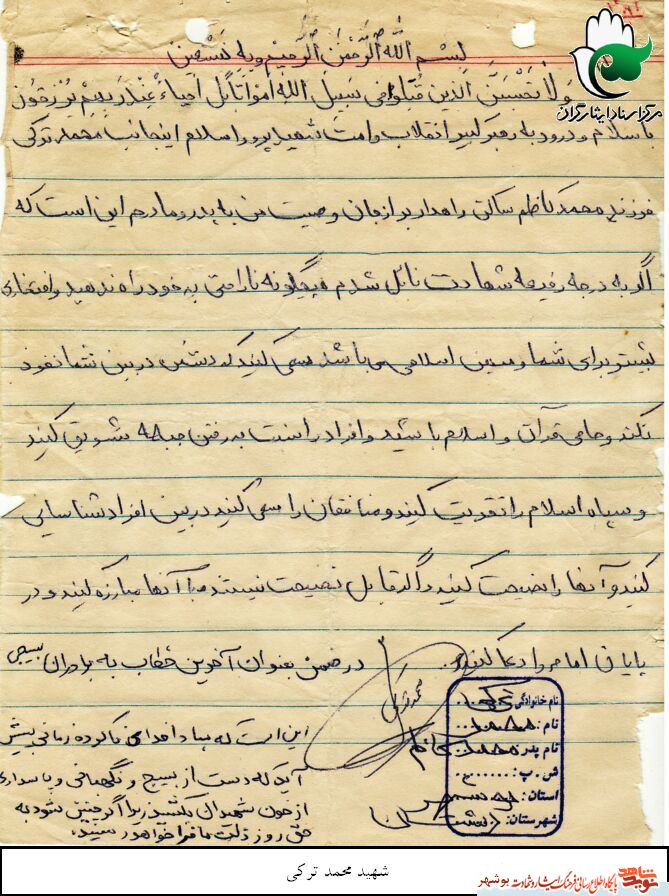 بسم الله الرحمن الرحیم وبه نستعین
ولا تحسبن الذین قتلوا فی سبیل الله امواتا بل احیاء عند ربهم یرزقون
با سلام و درود به رهبر کبیر انقلاب وامت شهید پرور اسلام اینجانب محمد ترکی
فرزند محمد کاظم ساکن راهدار برازجان وصیت من به پدر و مادرم این است که
اگر به درجه رفیعه شهادت نائل شدم هیچگونه ناراحتی به خود راه ندهید و افتخاری
بیشتر برای شما و میهن اسلامی می باشد سعی کنید که دشمن در بین شما نفوذ
نکند و حامی قرآن و اسلام باشید و افراد را نسبت به رفتن جبهه تشویق کنید
و سپاه اسلام را تقویت کنید و منافقان را سعی کنید در بین افراد شناسایی
کنید و آنها را نصیحت کنید و اگر قابل نصیحت نیستند با آنها مبارزه کنید و در
پایان امام را دعا کنید. در ضمن بعنوان آخرین خطاب به برادران بسیجی
این است که مبادا خدای ناکرده زمانی پیش
آید که دست از بسیج و نگهبانی و پاسداری
از خون شهیدان بکشند زیرا اگر چنین شود به
حق روز ذلت ما فرا خواهد رسید.
محمد ترکی
نام خانوادگی: ترکی
نام: محمد
نام پدر: محمد کاظم
ش.پ:
استان: بوشهر
شهرستان: دشتستان
مرکز اسناد ایثارگران
شهید محمد ترکی
نوید شاهد
پایگاه اطلاع رسانی فرهنگ ایثار و شهادت بوشهر